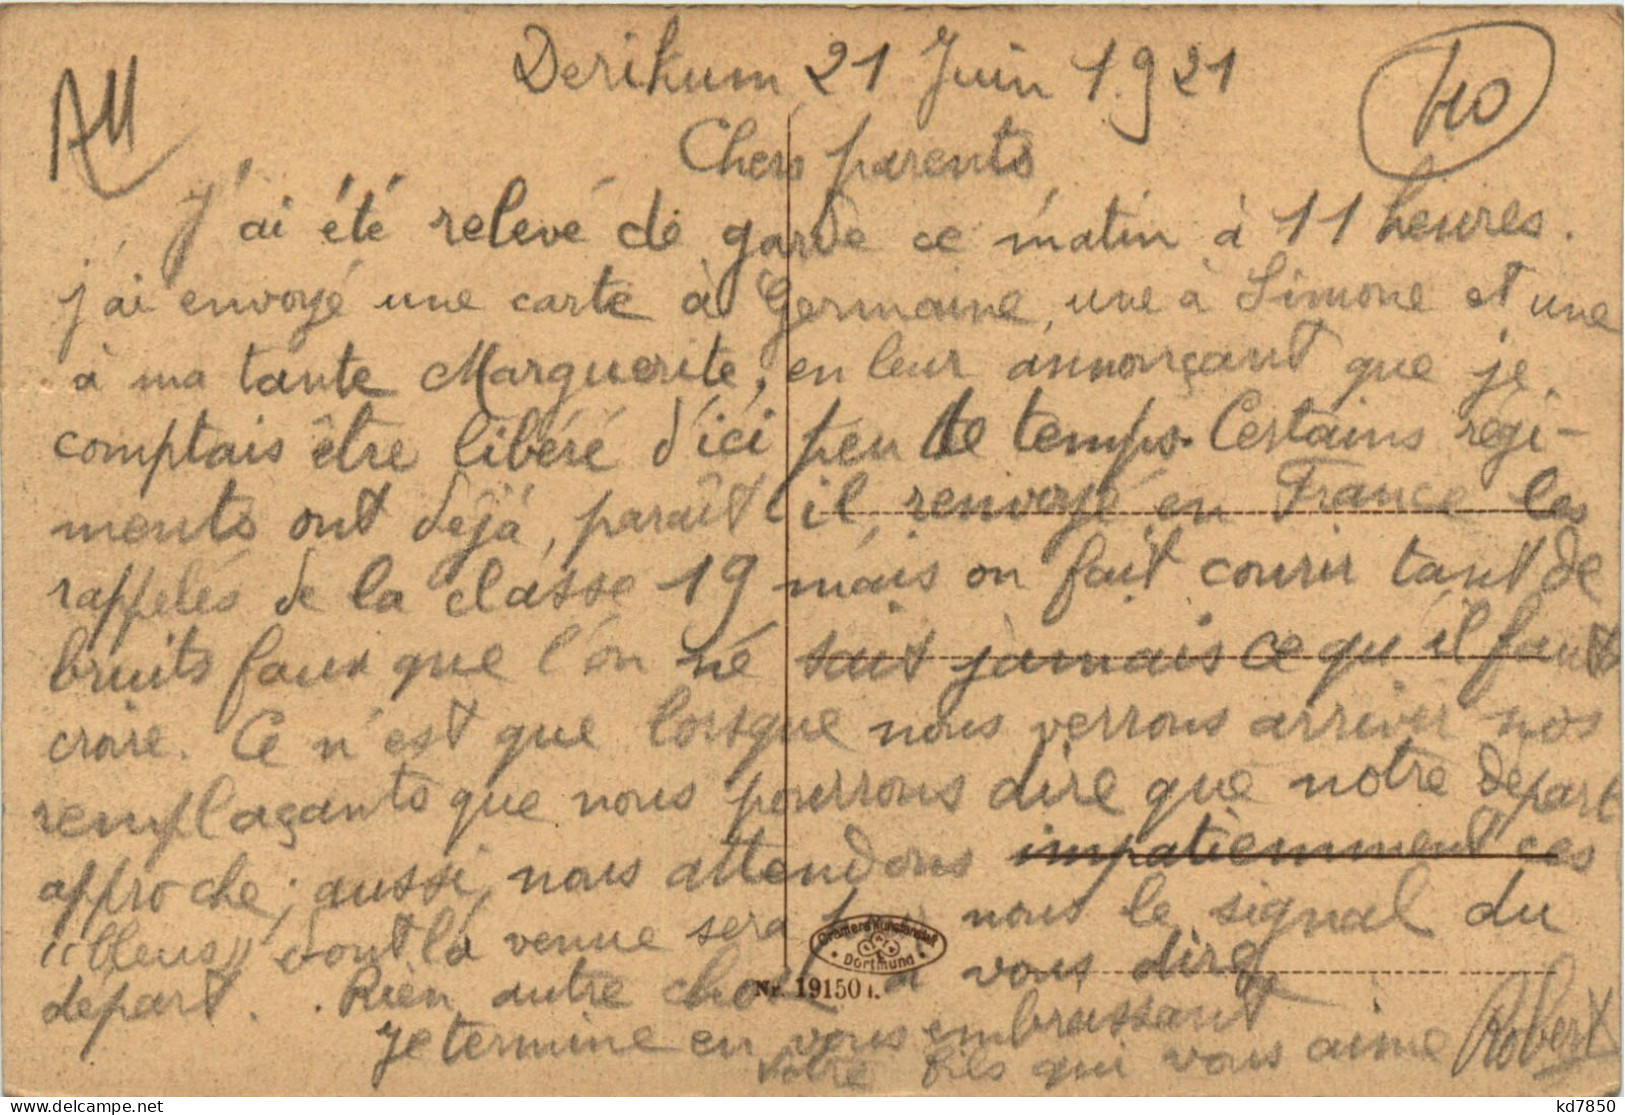 Derikum 21 Juin 1921
40
AM
Chers parents
J'ai été relevé de garde ce matin à 11 heures.
j'ai envoyé une carte à Germaine, une à Simone et une
à ma tante Marguerite, en leur annonçant que je
comptais être libéré d'ici peu de temps. Certains régi-
ments ont déjà, paraît il, renvoyé en France les
rappelés de la classe 19 mais on fait courir tant de
bruits faux que l'on ne sait jamais ce qu'il faut
croire. Ce n'est que lorsque nous verrons arriver nos
remplaçants que nous pourrons dire que notre départ
approche; aussi, nous attendons impatiemment ces
"bleus" dont la venue sera pour nous le signal du
départ. Rien autre chose à vous dire
Cramers Kunstanstalt
Dortmund
Nr. 19150 I.
Je termine en vous embrassant
Votre fils qui vous aime Robert
kd7850